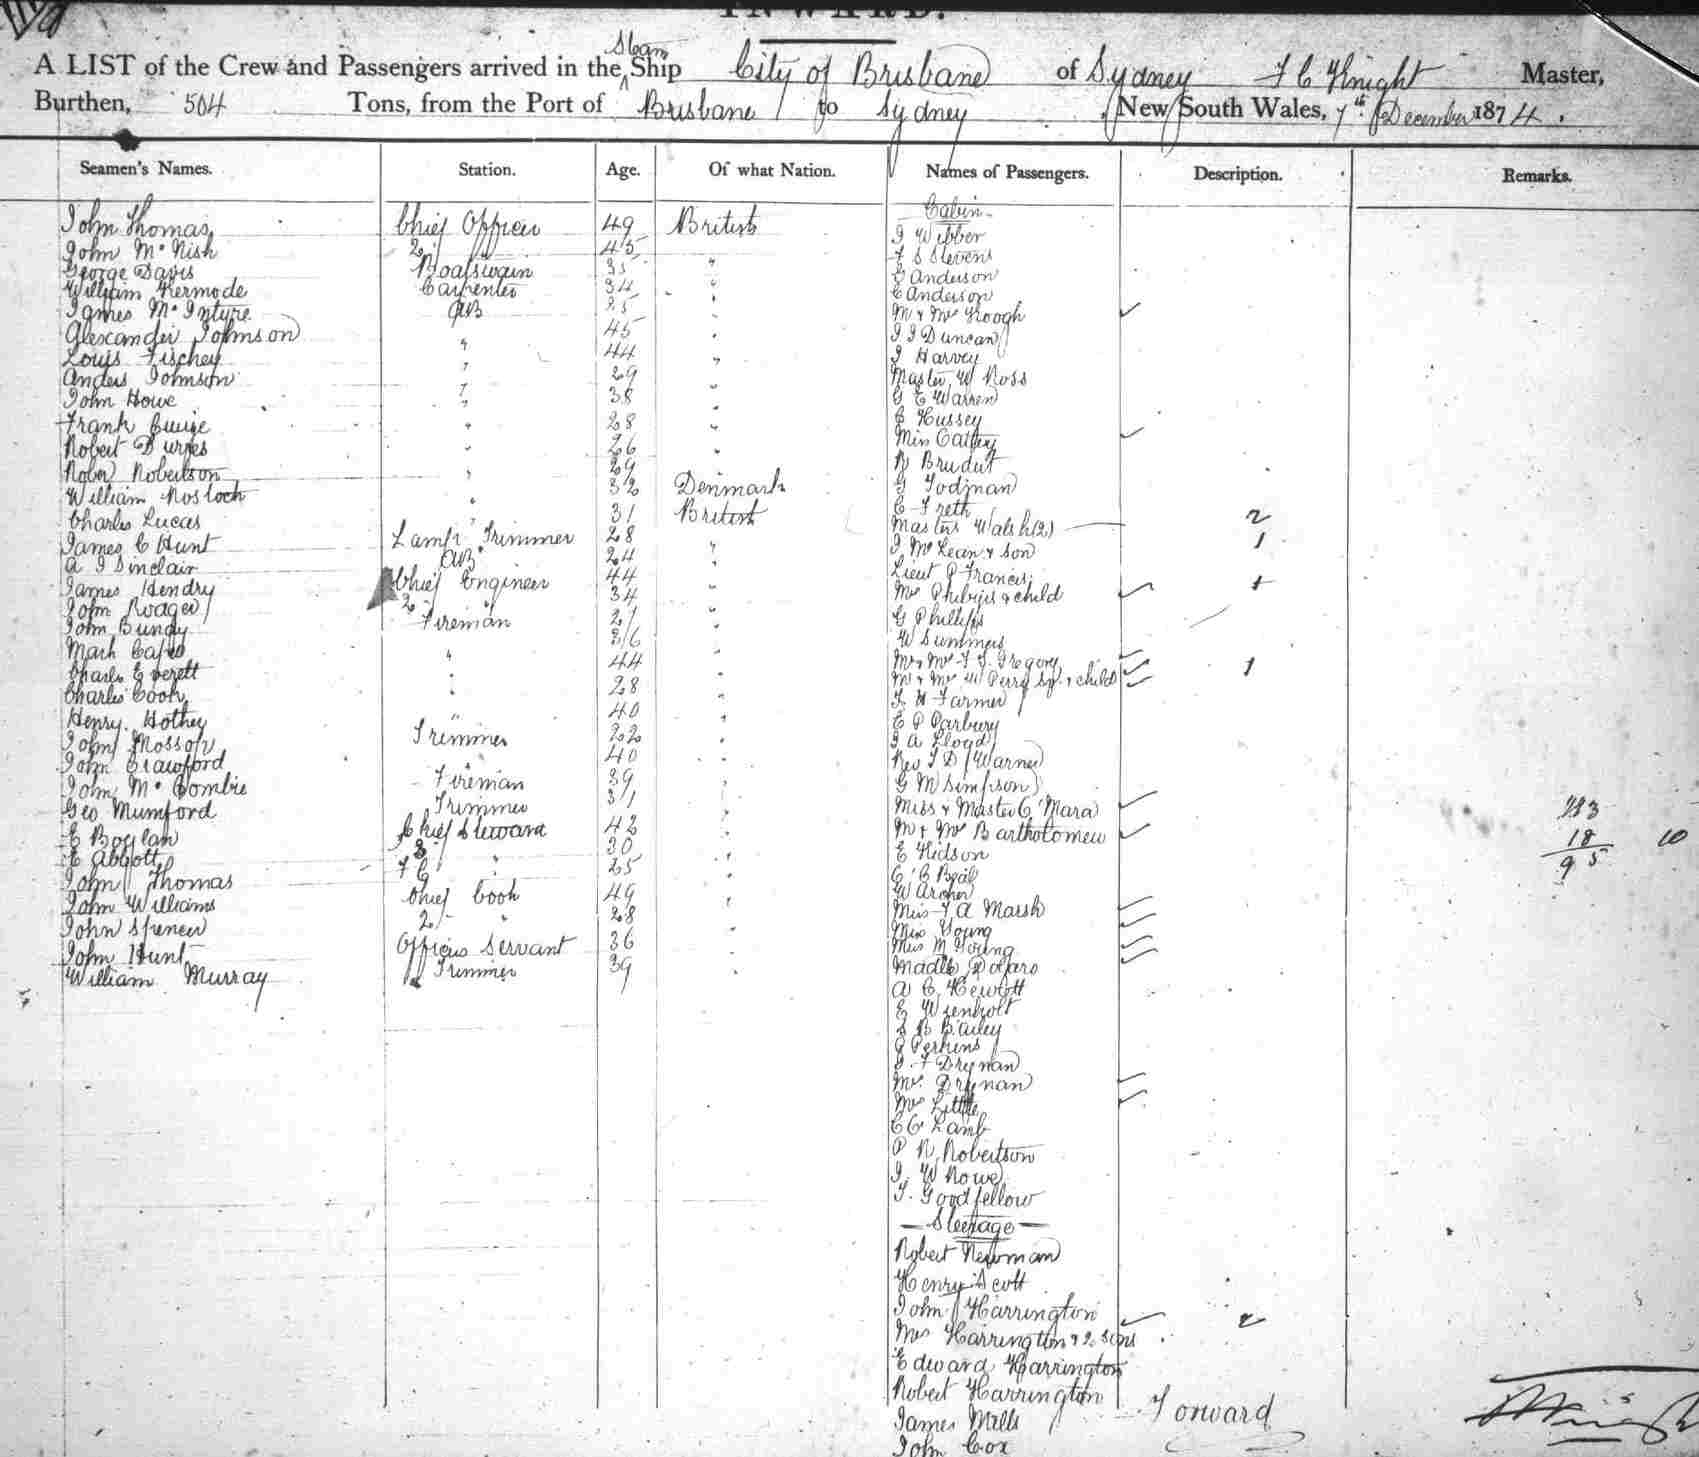 INWARD.
A LIST of the Crew and Passengers arrived in the Steam Ship City of Brisbane of Sydney F C Knight Master,
Burthen, 504 Tons, from the Port of Brisbane to Sydney New South Wales, 7th December 1874.
Seamen's Names. Station. Age. Of what Nation. Names of Passengers. Description. Remarks.
John Thomas Chief Officer 49 British
John McNish 2 " 45
George Davis Boatswain 35 "
William Kermode Carpenter 34 "
James McIntyre AB 25 "
Alexander Johnson " 45 "
Louis Fischey " 44 "
Anders Johnson " 29 "
John Howe " 38 "
Frank 28 "
Robert 26 "
Robert Robertson " 29
William Rostoch " 32 Denmark
Charles Lucas " 31 British
James C Hunt Lamp Trimmer 28 "
A J Sinclair AB 24 "
James Hendry Chief Engineer 44 "
John Rodger 2 " 34 "
John Bundy Fireman 21 "
Mark 36 "
Charles Everett " 44 "
Charles Cook " 28 "
Henry Hothey " 40 "
John Mossop Trimmer 22 "
John Crawford 40 "
John McCombie Fireman 39 "
Geo Mumford Trimmer 31 "
E Boylan Chief Steward 42 "
E Abbott 2 " 30 "
John Thomas F C " 25 "
John Williams Chief Cook 49 "
John Spencer 2 " 28 "
John Hunt Officers Servant 36 "
William Murray Trimmer 39 "
Cabin
J Webber
F S Stevens
G Anderson
C Anderson
Mr & Mrs Keogh
J J Duncan
J Harvey
Master W Ross
G E Warren
C Hussey
Miss
R
G Todman
E Freth
Masters Walsh (2) 2
J McLean & Son 1
Lieut P Francis
Mrs & child 1
G Phillips
W Summers
Mr & Mrs F J Gregory
Mr & Mrs W Perry & child 1
F W Farmer
E P Parbury
J A Lloyd
Rev J D Warner
G M Simpson
Miss & Master O'Mara
Mr & Mrs Bartholomew
E Hidson
C B
W Archer
Miss F A Marsh
Miss Young
Miss M Young
Madlle
A C Hewlett
E Wienholt
S B Bailey
P Perkins
J F Drynan
Mrs Drynan
Mrs Little
C C Lamb
P R Robertson
J W Rowe
T Goodfellow
— Steerage —
Robert Newman
Henry Scott
John Harrington
Mrs Harrington & 2 sons 2
Edward Harrington
Robert Harrington
James Mills
John Cox
Forward
18 10
95